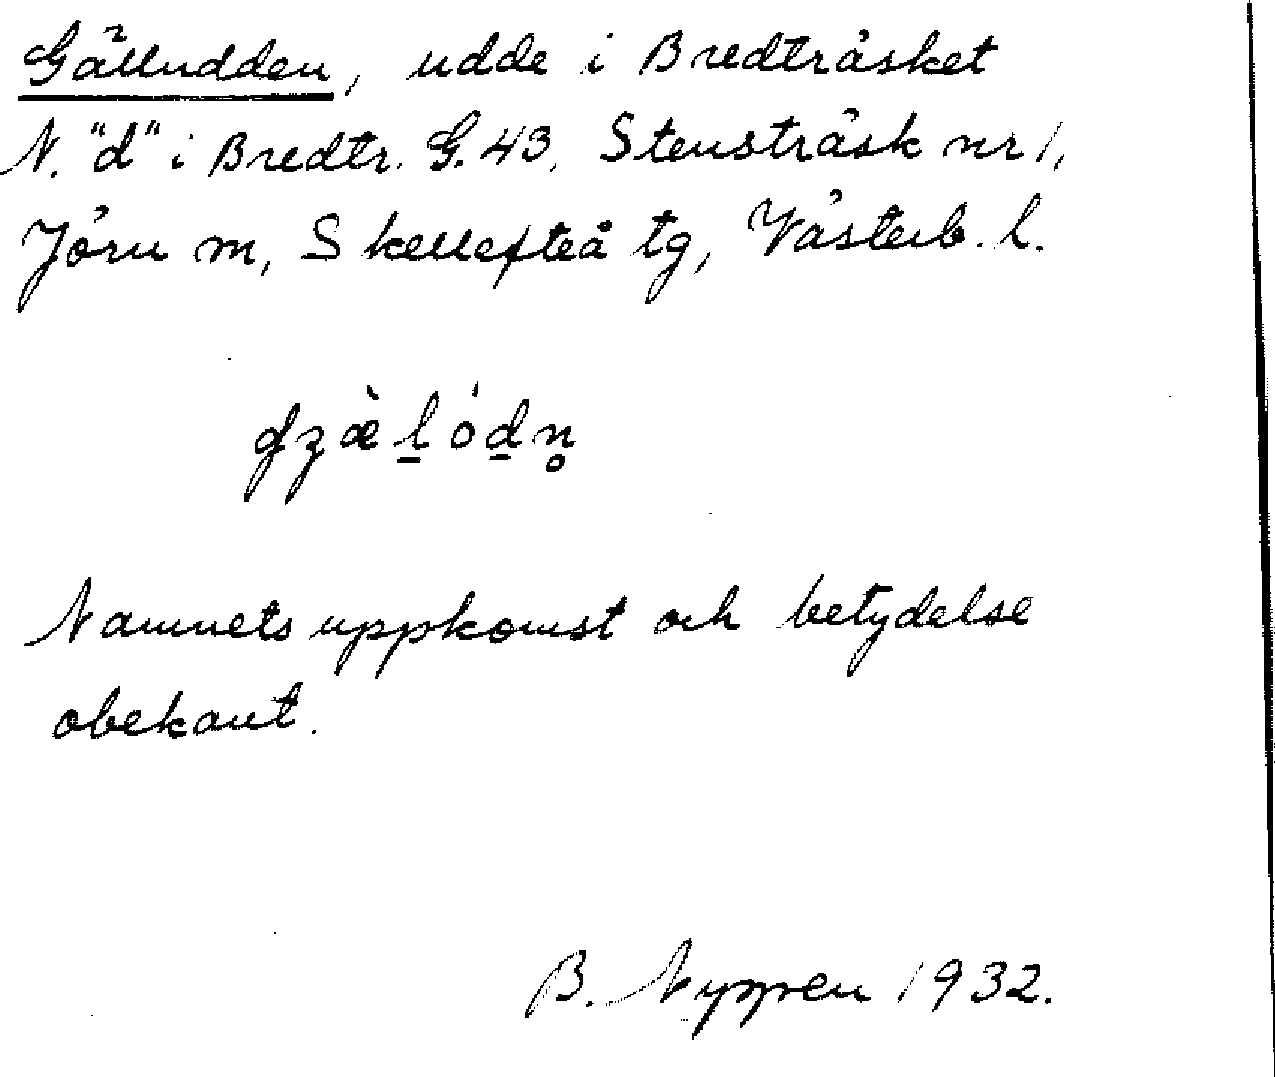 Gälludden, udde i Bredträsket
N. "d" i Bredtr. G. 43, Stensträsk nr 1,
Jörn m, Skellefteå tg, Västerb. l.
Namnets uppkomst och betydelse
obekant.
B. Nyppen 1932.